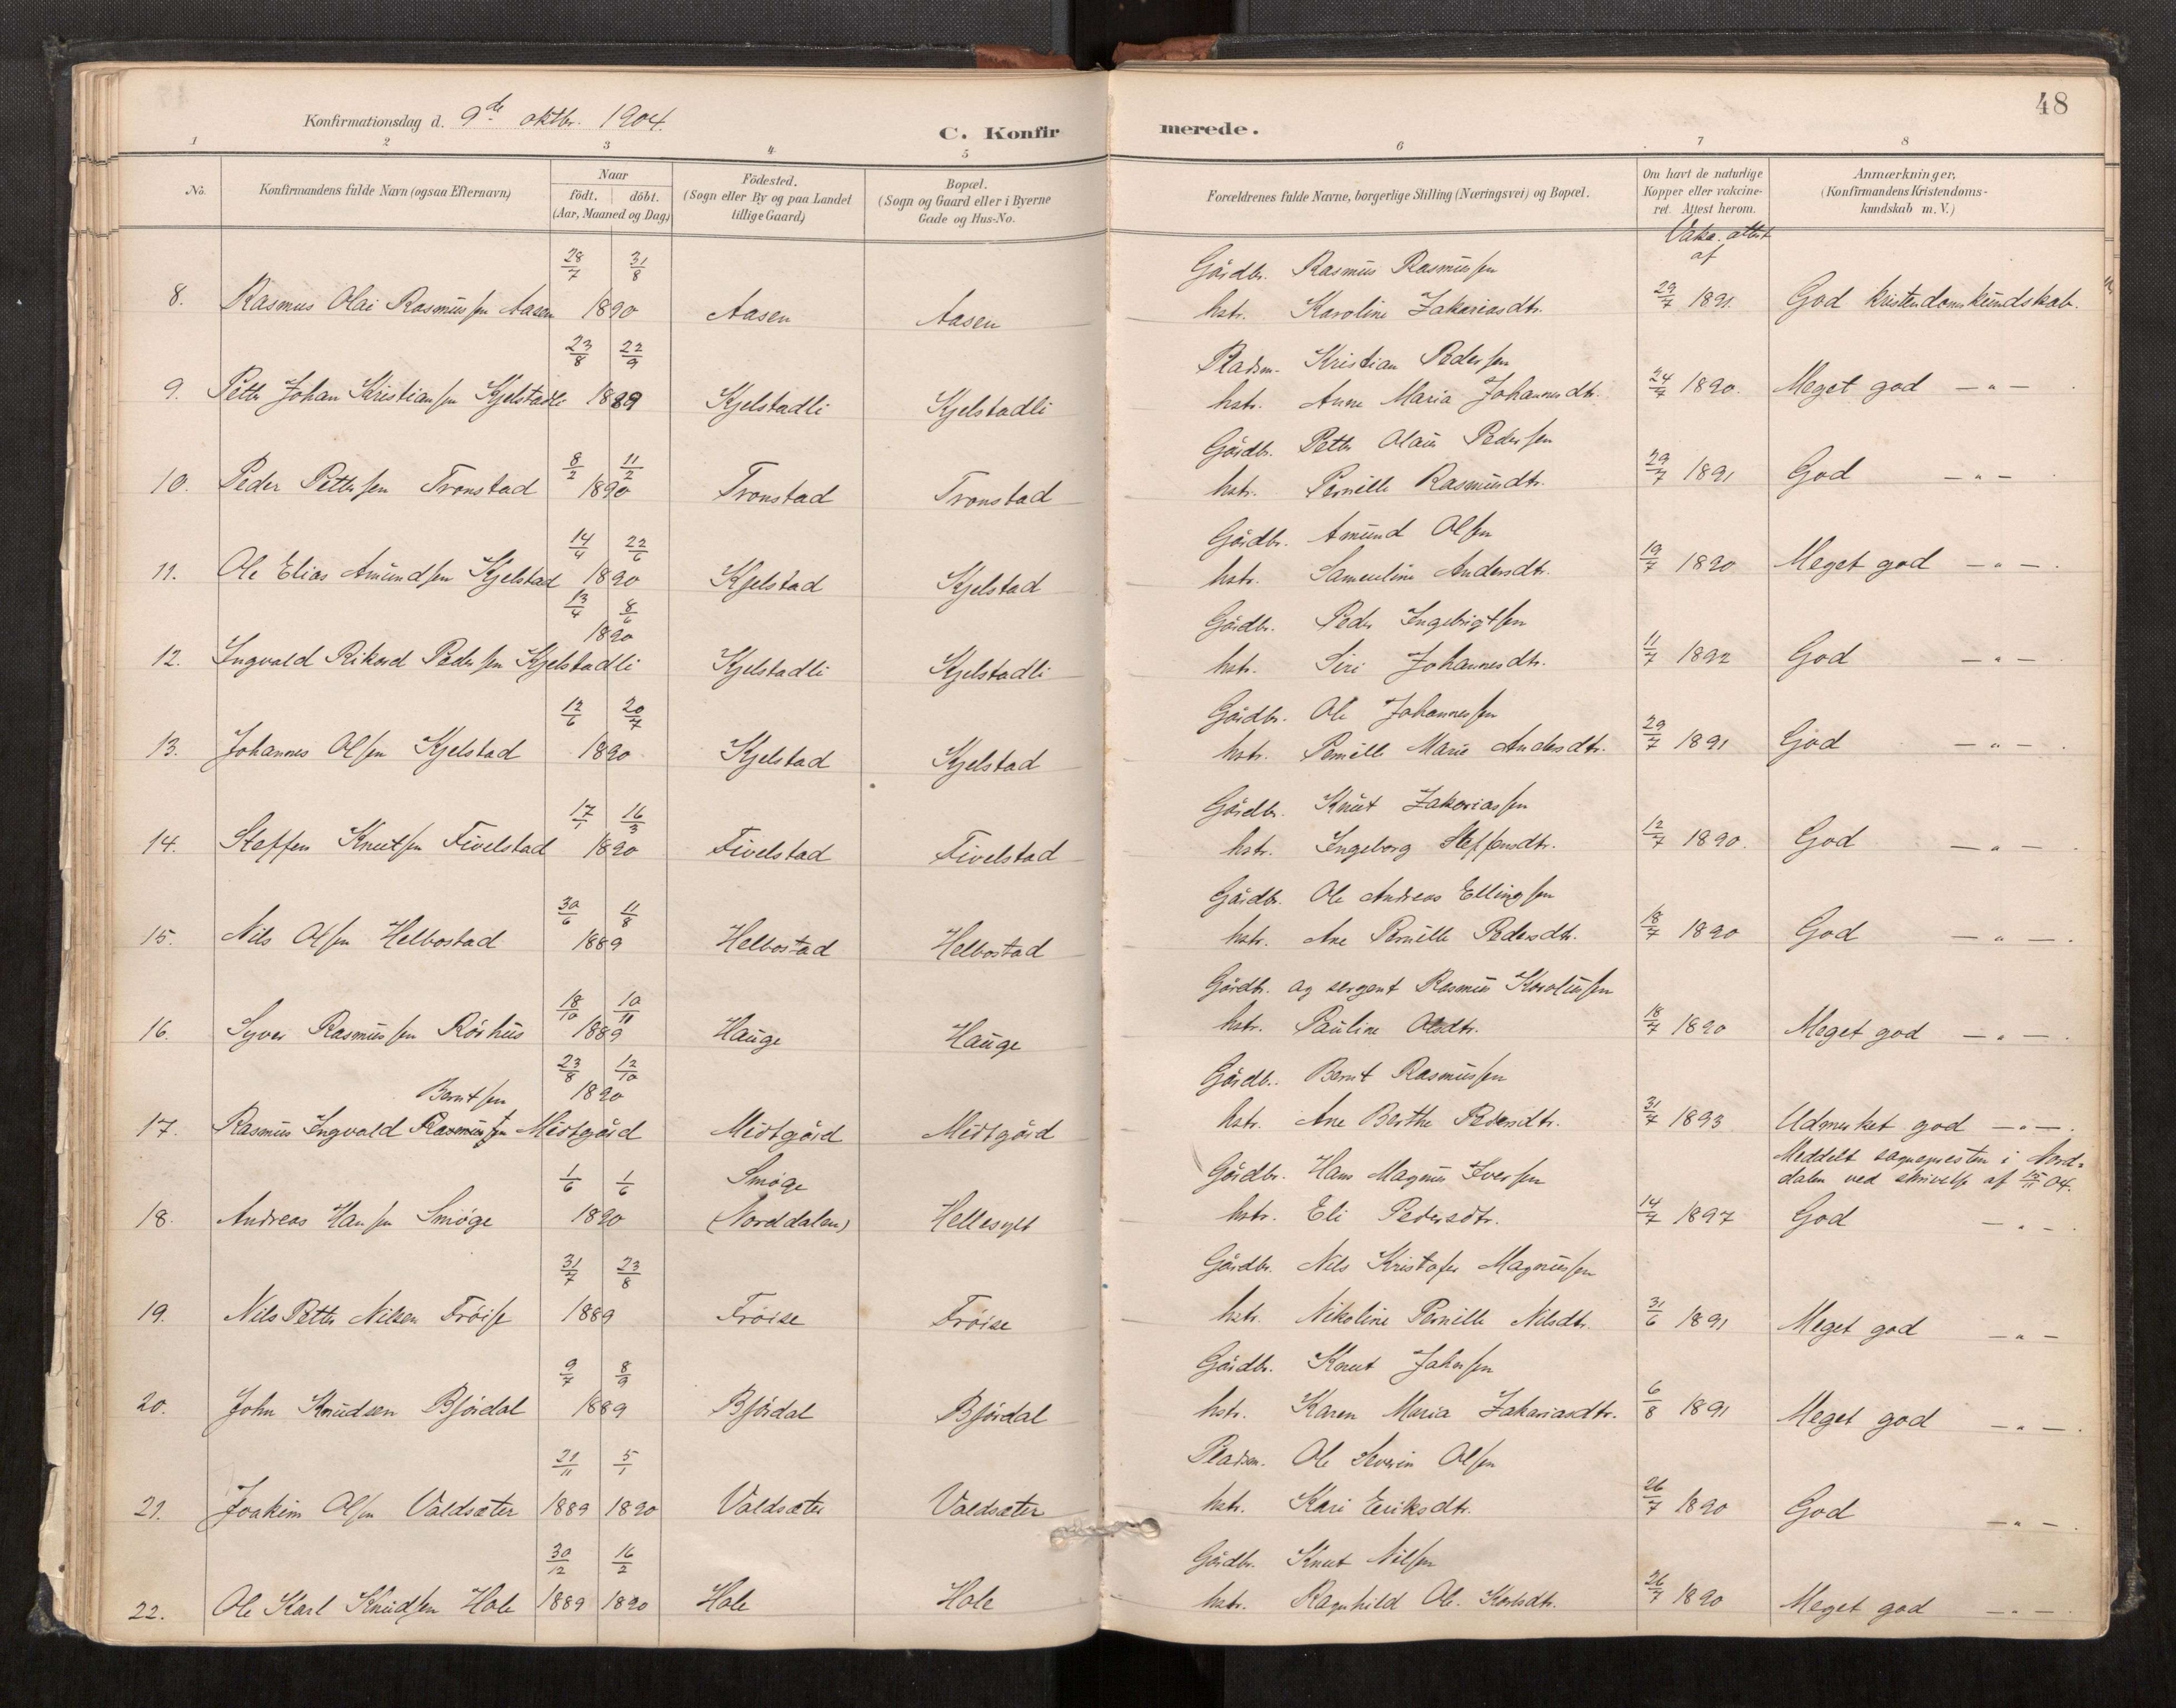 48
Konfirmationsdag d. 9de oktbr. 1904.
C. Konfirmerede.
1 2 3 4 5 6 7 8
No.
Konfirmandens fulde Navn (ogsaa Efternavn)
Naar
födt. döbt.
(Aar, Maaned og Dag)
Födested.
(Sogn eller By og paa Landet
tillige Gaard)
Bopæl.
(Sogn og Gaard eller i Byerne
Gade og Hus-No.
Forældrenes fulde Navne, borgerlige Stilling (Næringsvei) og Bopæl.
Om havt de naturlige
Kopper eller vakcine-
ret. Attest herom.
Anmærkninger,
(Konfirmandens Kristendoms-
kundskab m. V.)
Vakc. attest
af
28/7 31/8 Gårdbr. Rasmus Rasmussen
8. Rasmus Olai Rasmussen Aasen 1890 Aasen Aasen hstr. Karoline Zakariasdtr. 29/7 1891. God kristendomskundskab.
23/8 22/9 Pladsm. Kristian Pedersen
9. Petter Johan Kristiansen Kjelstadli 1889 Kjelstadli Kjelstadli hstr. Anne Maria Johannesdtr. 24/7 1890. Meget god — " — .
8/2 11/2 Gårdbr. Petter Olaus Pedersen
10. Peder Pettersen Tronstad 1890 Tronstad Tronstad hstr. Pernille Rasmusdtr. 29/7 1891 God — " — .
14/4 22/6 Gårdbr. Amund Olsen
11. Ole Elias Amundsen Kjelstad 1890 Kjelstad Kjelstad hstr. Samueline Andersdtr. 19/7 1890 Meget god — " — .
13/4 8/6 Gårdbr. Peder Ingebrigtsen
1890
12. Ingvald Rikard Pedersen Kjelstadli Kjelstadli Kjelstadli hstr. Siri Johannesdtr. 11/7 1892 God — " — .
12/6 20/7 Gårdbr. Ole Johannessen
13. Johannes Olsen Kjelstad 1890 Kjelstad Kjelstad hstr. Pernille Marie Andersdtr. 29/7 1891 God — " — .
17/1 16/3 Gårdbr. Knut Zakariassen
14. Steffen Knutsen Fivelstad 1890 Fivelstad Fivelstad hstr. Ingeborg Steffensdtr. 12/7 1890. God — " — .
30/6 11/8 Gårdbr. Ole Andreas Ellingsen
15. Nils Olsen Helbostad 1889 Helbostad Helbostad hstr. Ane Pernille Pedersdtr. 18/7 1890 God — " — .
18/10 10/11 Gårdbr. og sergent Rasmus Karolussen
16. Syver Rasmussen Rørhus 1889 Hauge Hauge hstr. Pauline Olsdtr. 18/7 1890 Meget god — " — .
23/8 12/10 Gårdbr. Bernt Rasmussen
Berntsen 1890
17. Rasmus Ingvald Rasmussen Midtgård Midtgård Midtgård hstr. Ane Berthe Pedersdtr. 31/7 1893 Udmerket god — " — .
1/6 1/6 Smøge Gårdbr. Hans Magnus Iversen Meddelt sognepresten i Nord-
dalen ved skrivelse af 15/11 04.
18. Andreas Hansen Smøge 1890 (Norddalen) Hellesylt hstr. Eli Pedersdtr. 14/7 1897 God — " — .
31/7 23/8 Gårdbr. Nils Kristofer Magnussen
19. Nils Petter Nilsen Frøise 1889 Frøise Frøise hstr. Nikoline Pernille Nilsdtr. 31/6 1891 Meget god — " —
9/7 8/9 Gårdbr. Knut Johnsen
20. John Knudsen Bjørdal 1889 Bjørdal Bjørdal hstr. Karen Maria Zakariasdtr. 6/8 1891 Meget god — " — .
21/11 5/1 Pladsm. Ole Severin Olsen
21. Joakim Olsen Valdsæter 1889 1890 Valdsæter Valdsæter hstr. Kari Eriksdtr. 26/7 1890 God — " — .
30/12 16/2 Gårdbr. Knut Nilsen
22. Ole Karl Knudsen Hole 1889 1890 Hole Hole hstr. Ragnhild Ole Karlsdtr. 26/7 1890 Meget god — " — .